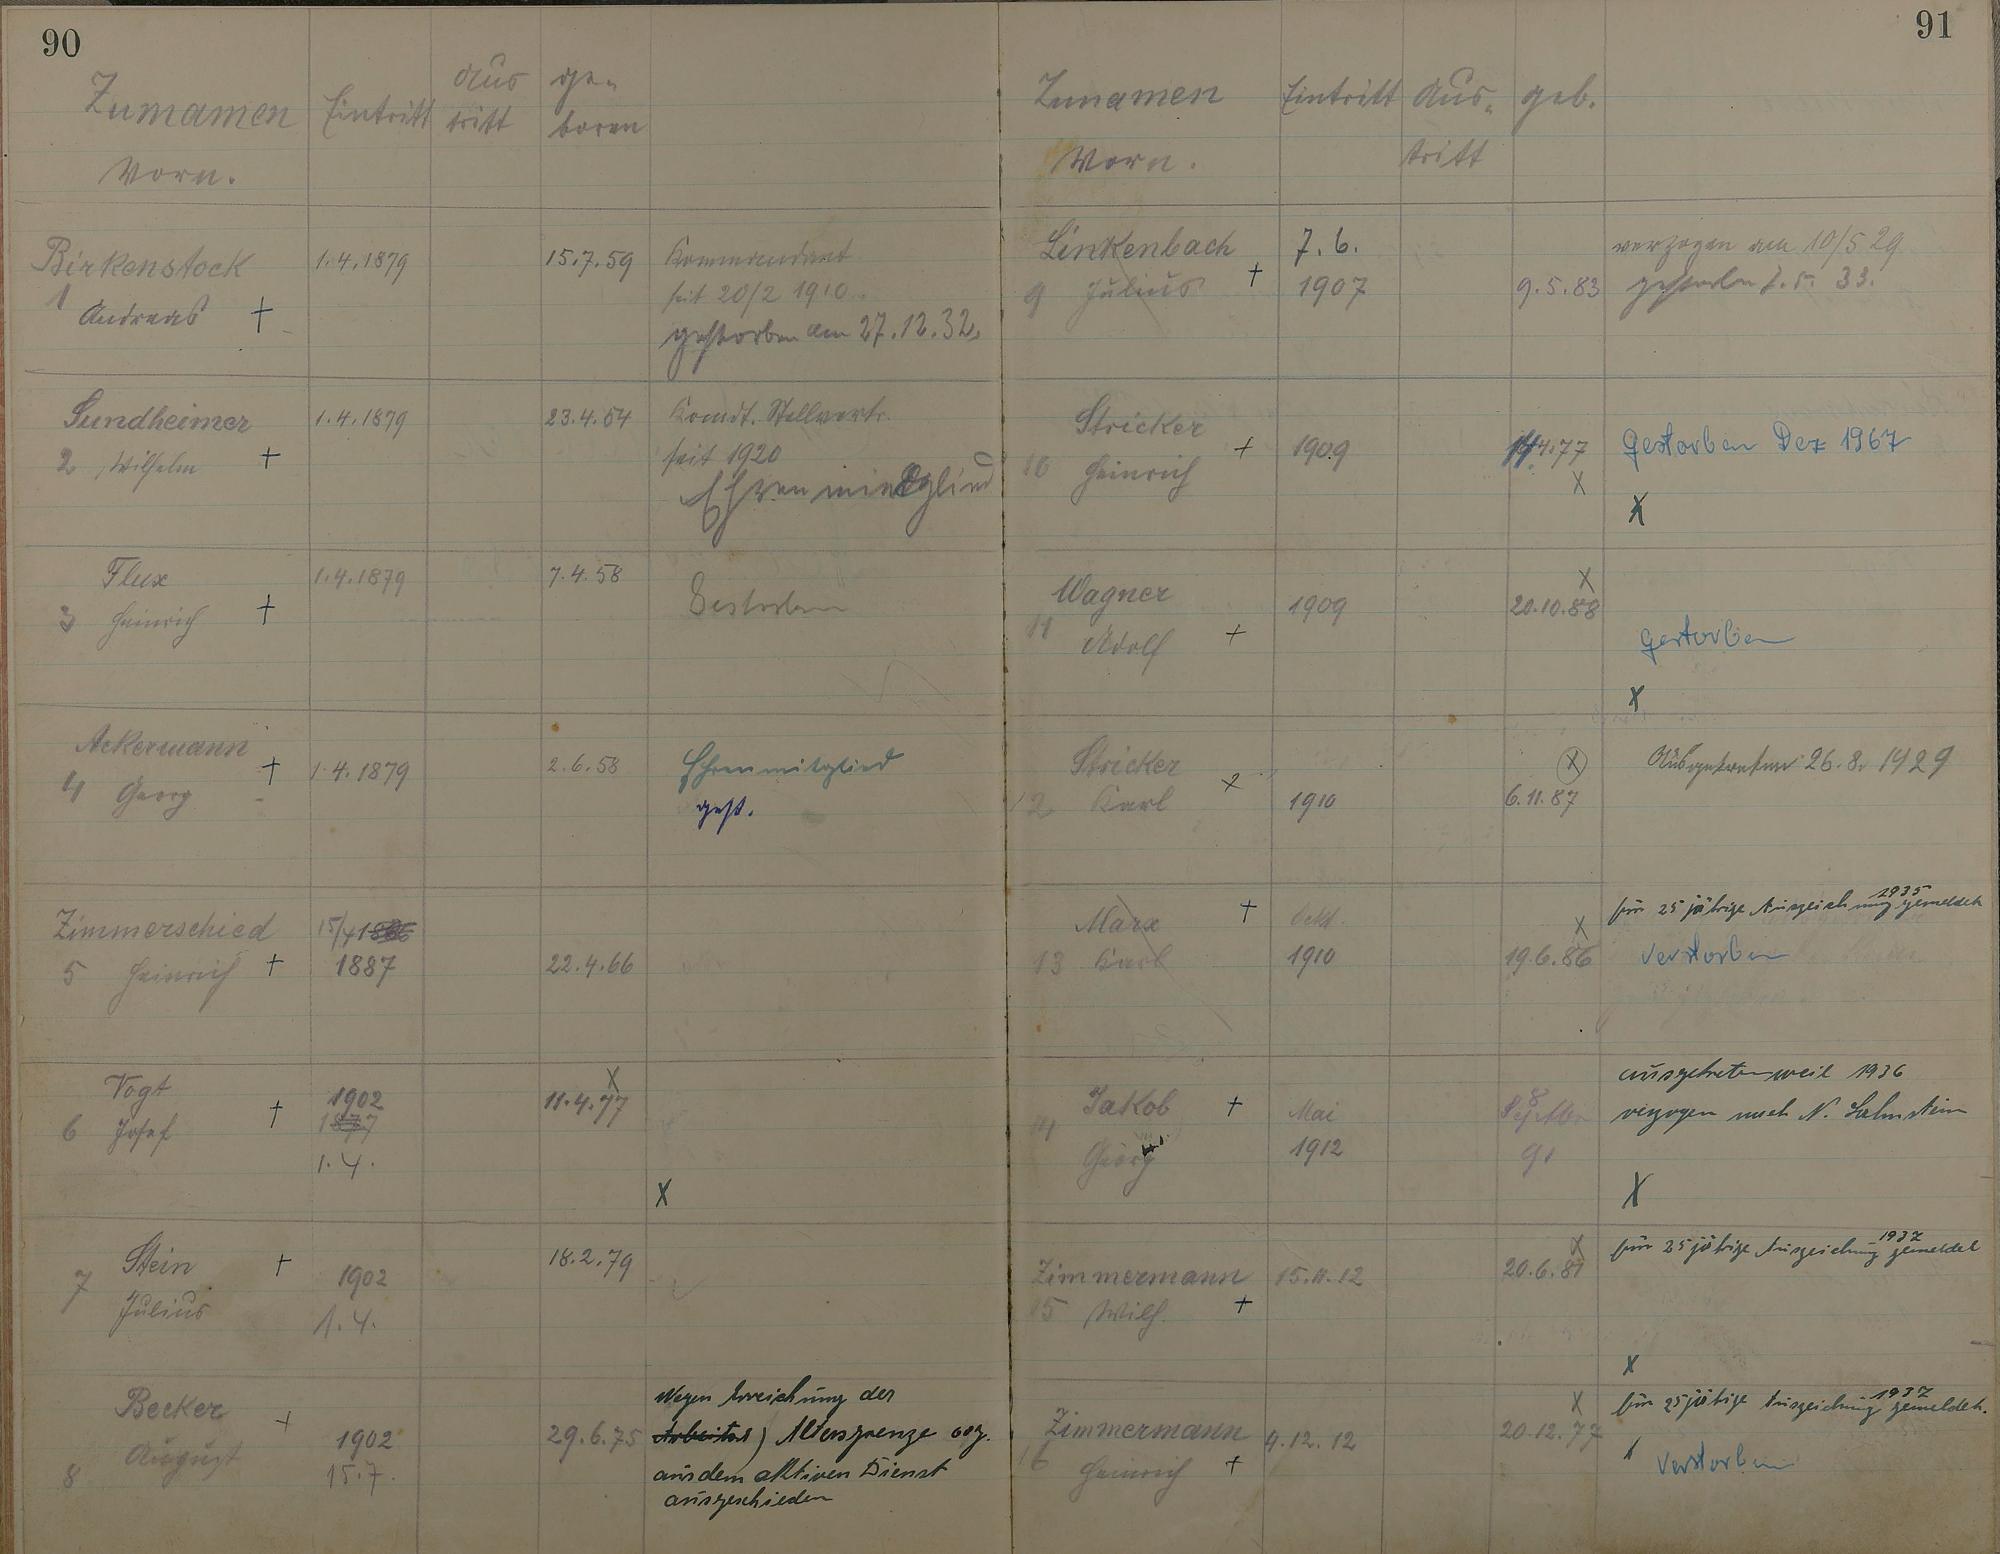 90
Zunamen Eintritt Aus ge-
Vorn. tritt boren
Birkenstock 1.4.1879 15.7.59 Kommandant
1 Andreas + seit 20/2 1910.
gestorben am 27.12.32.
Sundheimer 1.4.1879 23.4.54 Komdt. Stellvertr.
2 Wilhelm + seit 1920
Ehrenmitglied
Flux 1.4.1879 7.4.58 Gestorben
3 Heinrich +
Ackermann + 1.4.1879 2.6.58 Ehrenmitglied
4 Georg gest.
Zimmerschied 15/4 1886
5 Heinrich + 1887 22.4.66
Vogt 1902 X
6 Josef + 1877 11.4.77
1.4.
X
Stein + 18.2.79
7 Julius 1902
1.4.
Becker + Wegen Erreichung der
August 1902 29.6.75 Arbeits) Altersgrenze
8 15.7. aus dem aktiven Dienst
ausgeschieden
91
Zunamen Eintritt Aus- geb.
Vorn. tritt
Linkenbach 7.6. verzogen am 10/5 29
9 Julius + 1907 9.5.83 gestorben 33.
Stricker + 1909 4.77 Gestorben Dez 1967
10 Heinrich X
X
Wagner 1909 X
11 Adolf + 20.10.88
gestorben
X
Stricker X Ausgetreten 26.8.1929
12 Karl x 1910 6.11.87
Marx + Okt. X für 25 jährige Auszeichnung 1935 gemeldet
13 Karl 1910 19.6.86 verstorben
ausgetreten weil 1936
Jakob + Mai 8 verzogen nach N. Lahnstein
14 Georg 1912 91
X
X für 25 jährige Auszeichnung 1937 gemeldet
Zimmermann 15.11.12 20.6.81
15 Wilh. +
X
X für 25 jährige Auszeichnung 1937 gemeldet.
Zimmermann 9.12.12 20.12.77
16 Heinrich + verstorben